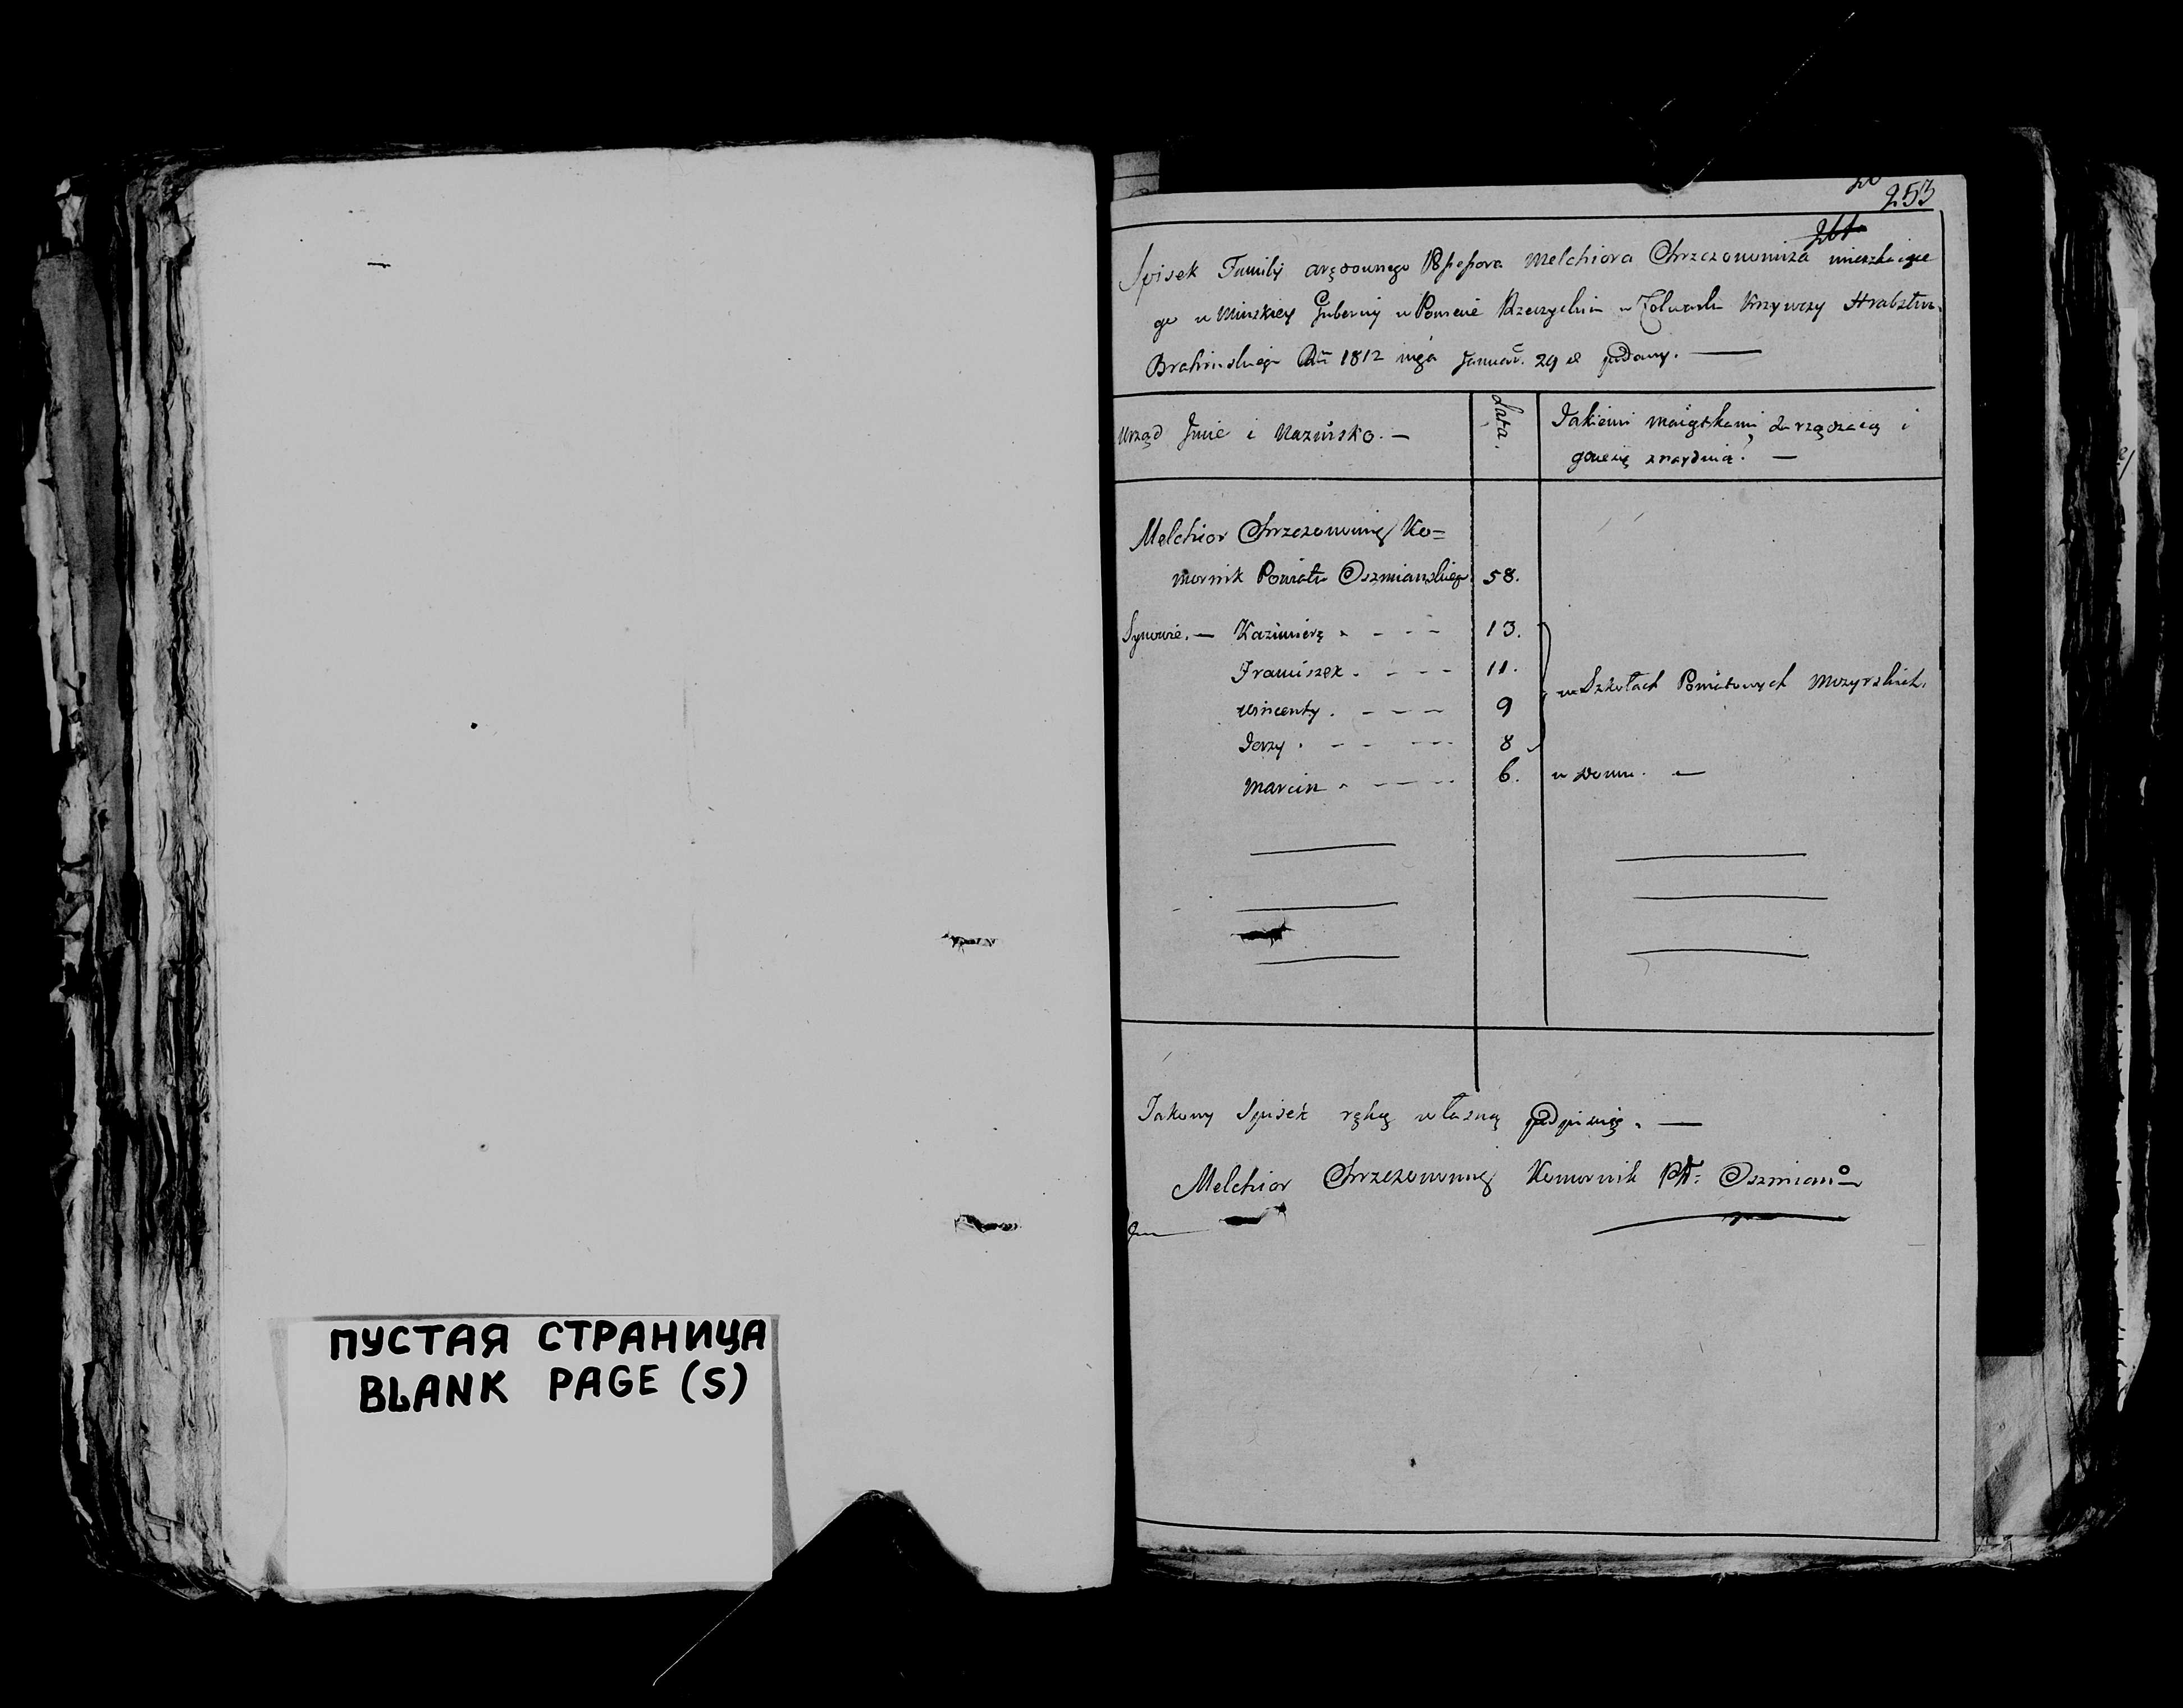 253
261
Spisek Familij arędownego Possessora Melchiora Chrzczonowicza mieszkaiące
go w Minskiey Gubernij w Powiecie Rzeczyckim w Folwarku Krzywczy Hrabstwa
Brahinskiego 1812 Januar. 29 d podany. —
Urząd Jmie i Nazwisko. —
Lata.
Jakiemi maiątkami zarządzaią i
gdzie się znaydują. —
Melchior Chrzczonowicz Ko=
mornik Powiatu Oszmianskiego 58.
Synowie. — Kazimierz 13.
Franciszek 11.
Wincenty 9
Jerzy 8
w Szkołach Powiatowych Mozyrskich.
Marcin 6. w domu. —
Takowy Spisek ręką własną podpisuię. —
Melchior Chrzczonowicz Komornik Ptu: Oszmian
ПУСТАЯ СТРАНИЦА
BLANK PAGE (S)